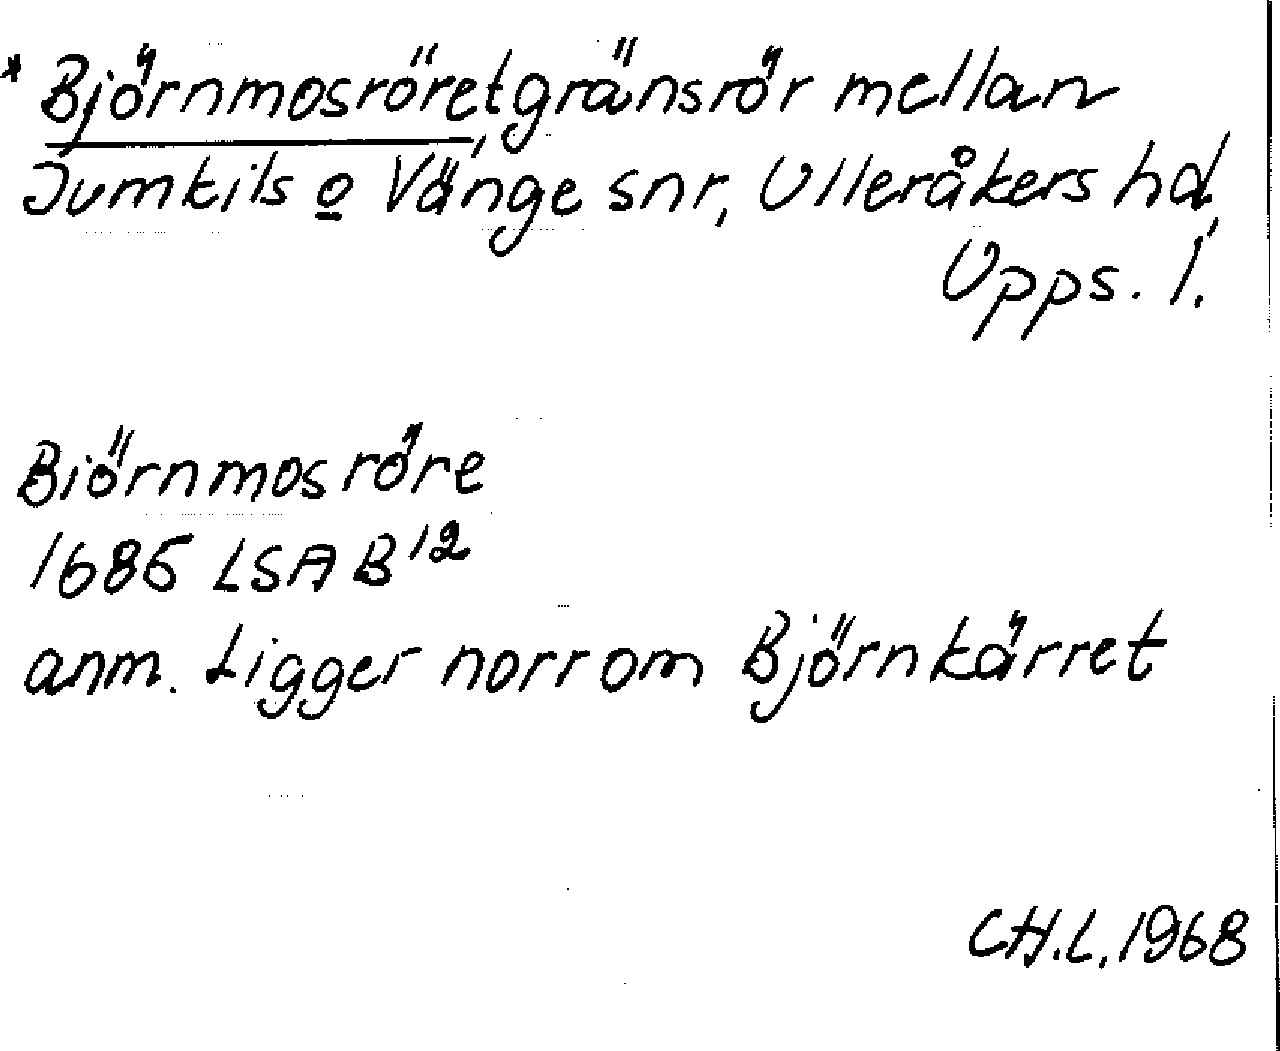 * Björnmosröret, gränsrör mellan
Jumkils o Vänge snr, Ulleråkers hd,
Upps. l.
Biörnmosröre
1685 LSA B12
anm. Ligger norr om Björnkärret
CH.L. 1968